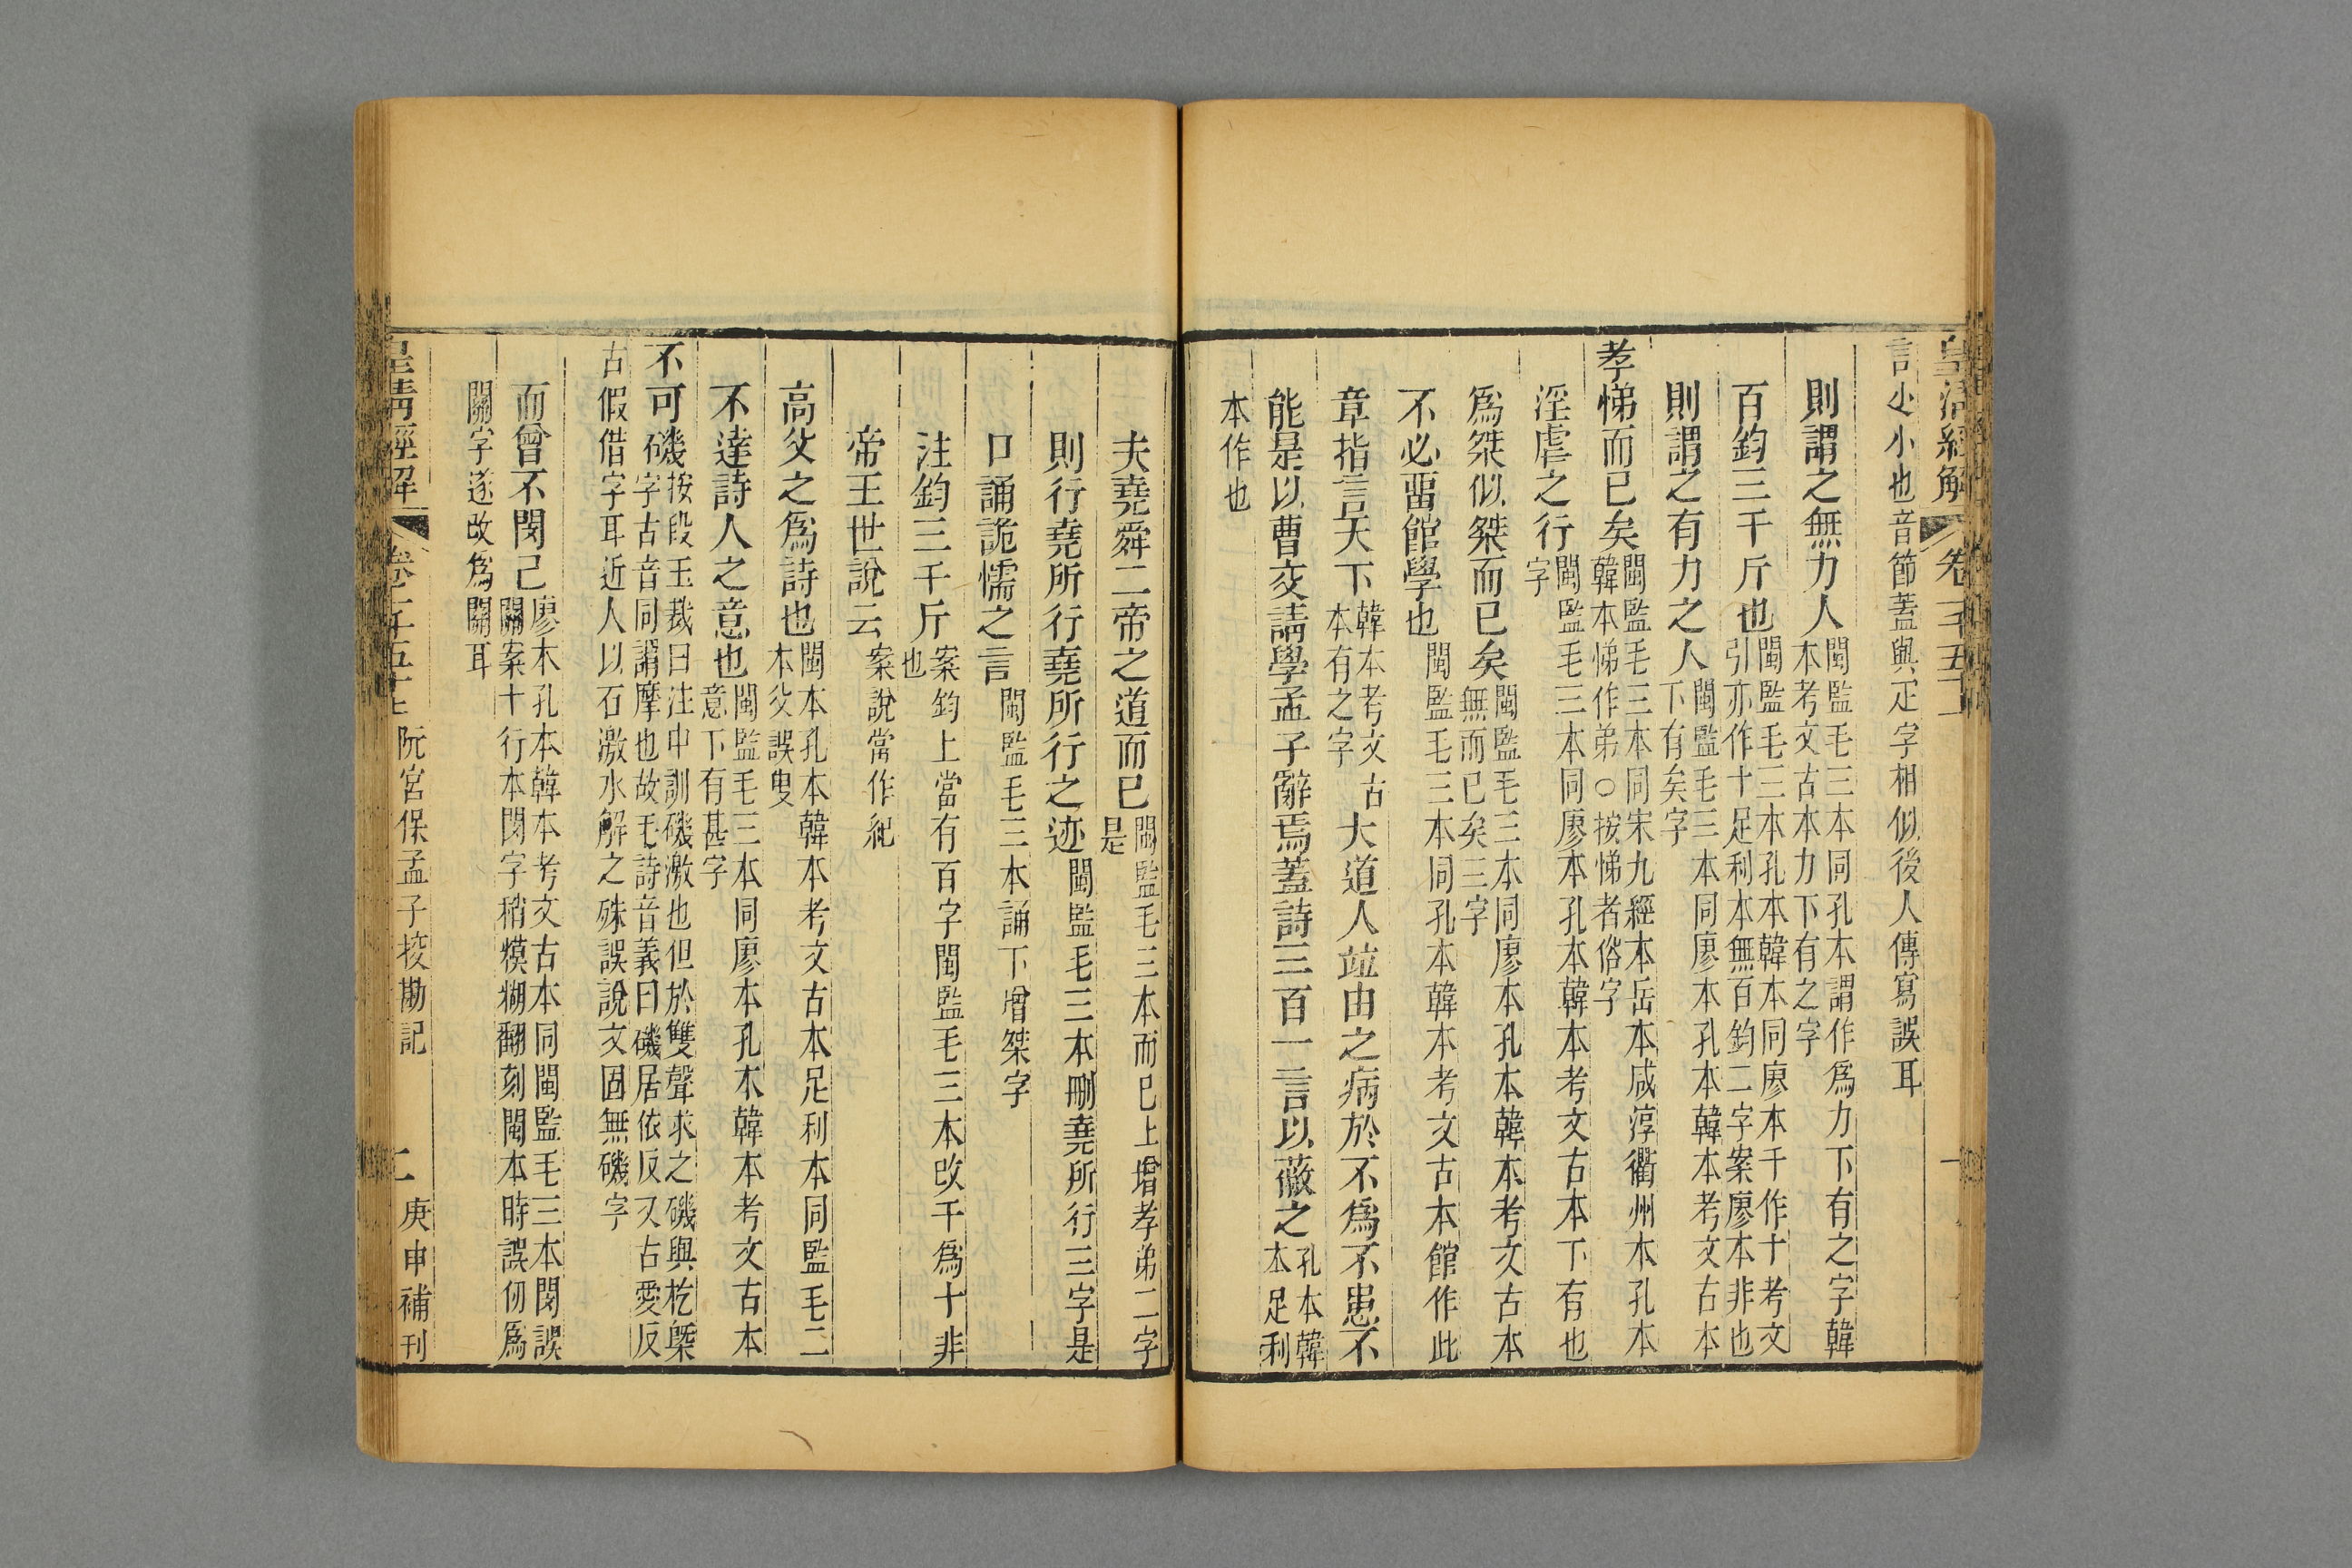 皇清經解
卷一千五十二
一
言小小也音節蓋與疋字相似後人傳寫誤耳
則謂之無力人閩監毛三本同孔本謂作爲力下有之字韓
本考文古本力下有之字
百鈞三千斤也閩監毛三本孔本韓本同廖本千作十考文
引亦作十足利本無百鈞二字案廖本非也
則謂之有力之人閩監毛三本同廖本孔本韓本考文古本
下有矣字
孝悌而已矣閩監毛三本同宋九經本岳本咸淳衢州本孔本
韓本悌作弟○按悌者俗字
淫虐之行閩監毛三本同廖本孔本韓本考文古本下有也
字
爲桀似桀而已矣閩監毛三本同廖本孔本韓本考文古本
無而已矣三字
不必畱館學也閩監毛三本同孔本韓本考文古本館作此
章指言天下韓本考文古
本有之字大道人竝由之病於不爲不患不
能是以曹交請學孟子辭焉蓋詩三百一言以蔽之孔本韓
本足利
本作也
夫堯舜二帝之道而已閩監毛三本而已上增孝弟二字
是
則行堯所行堯所行之迹閩監毛三本刪堯所行三字是
口誦詭懦之言閩監毛三本誦下增桀字
注鈞三千斤案鈞上當有百字閩監毛三本改千爲十非
也
帝王世說云案說當作紀
高㕛之爲詩也閩本孔本韓本考文古本足利本同監毛二
本㕛誤叟
不達詩人之意也閩監毛三本同廖本孔本韓本考文古本
意下有甚字
不可磯按段玉裁曰注中訓磯激也但於雙聲求之磯與杚槩
字古音同謂摩也故毛詩音義曰磯居依反又古愛反
古假借字耳近人以石激水解之殊誤說文固無磯字
而曾不閔己廖本孔本韓本考文古本同閩監毛三本閔誤
關案十行本閔字稍糢糊翻刻閩本時誤仞爲
關字遂改爲關耳
皇淸經解
卷一千五十二
阮宮保孟子挍勘記
二
庚申補刊